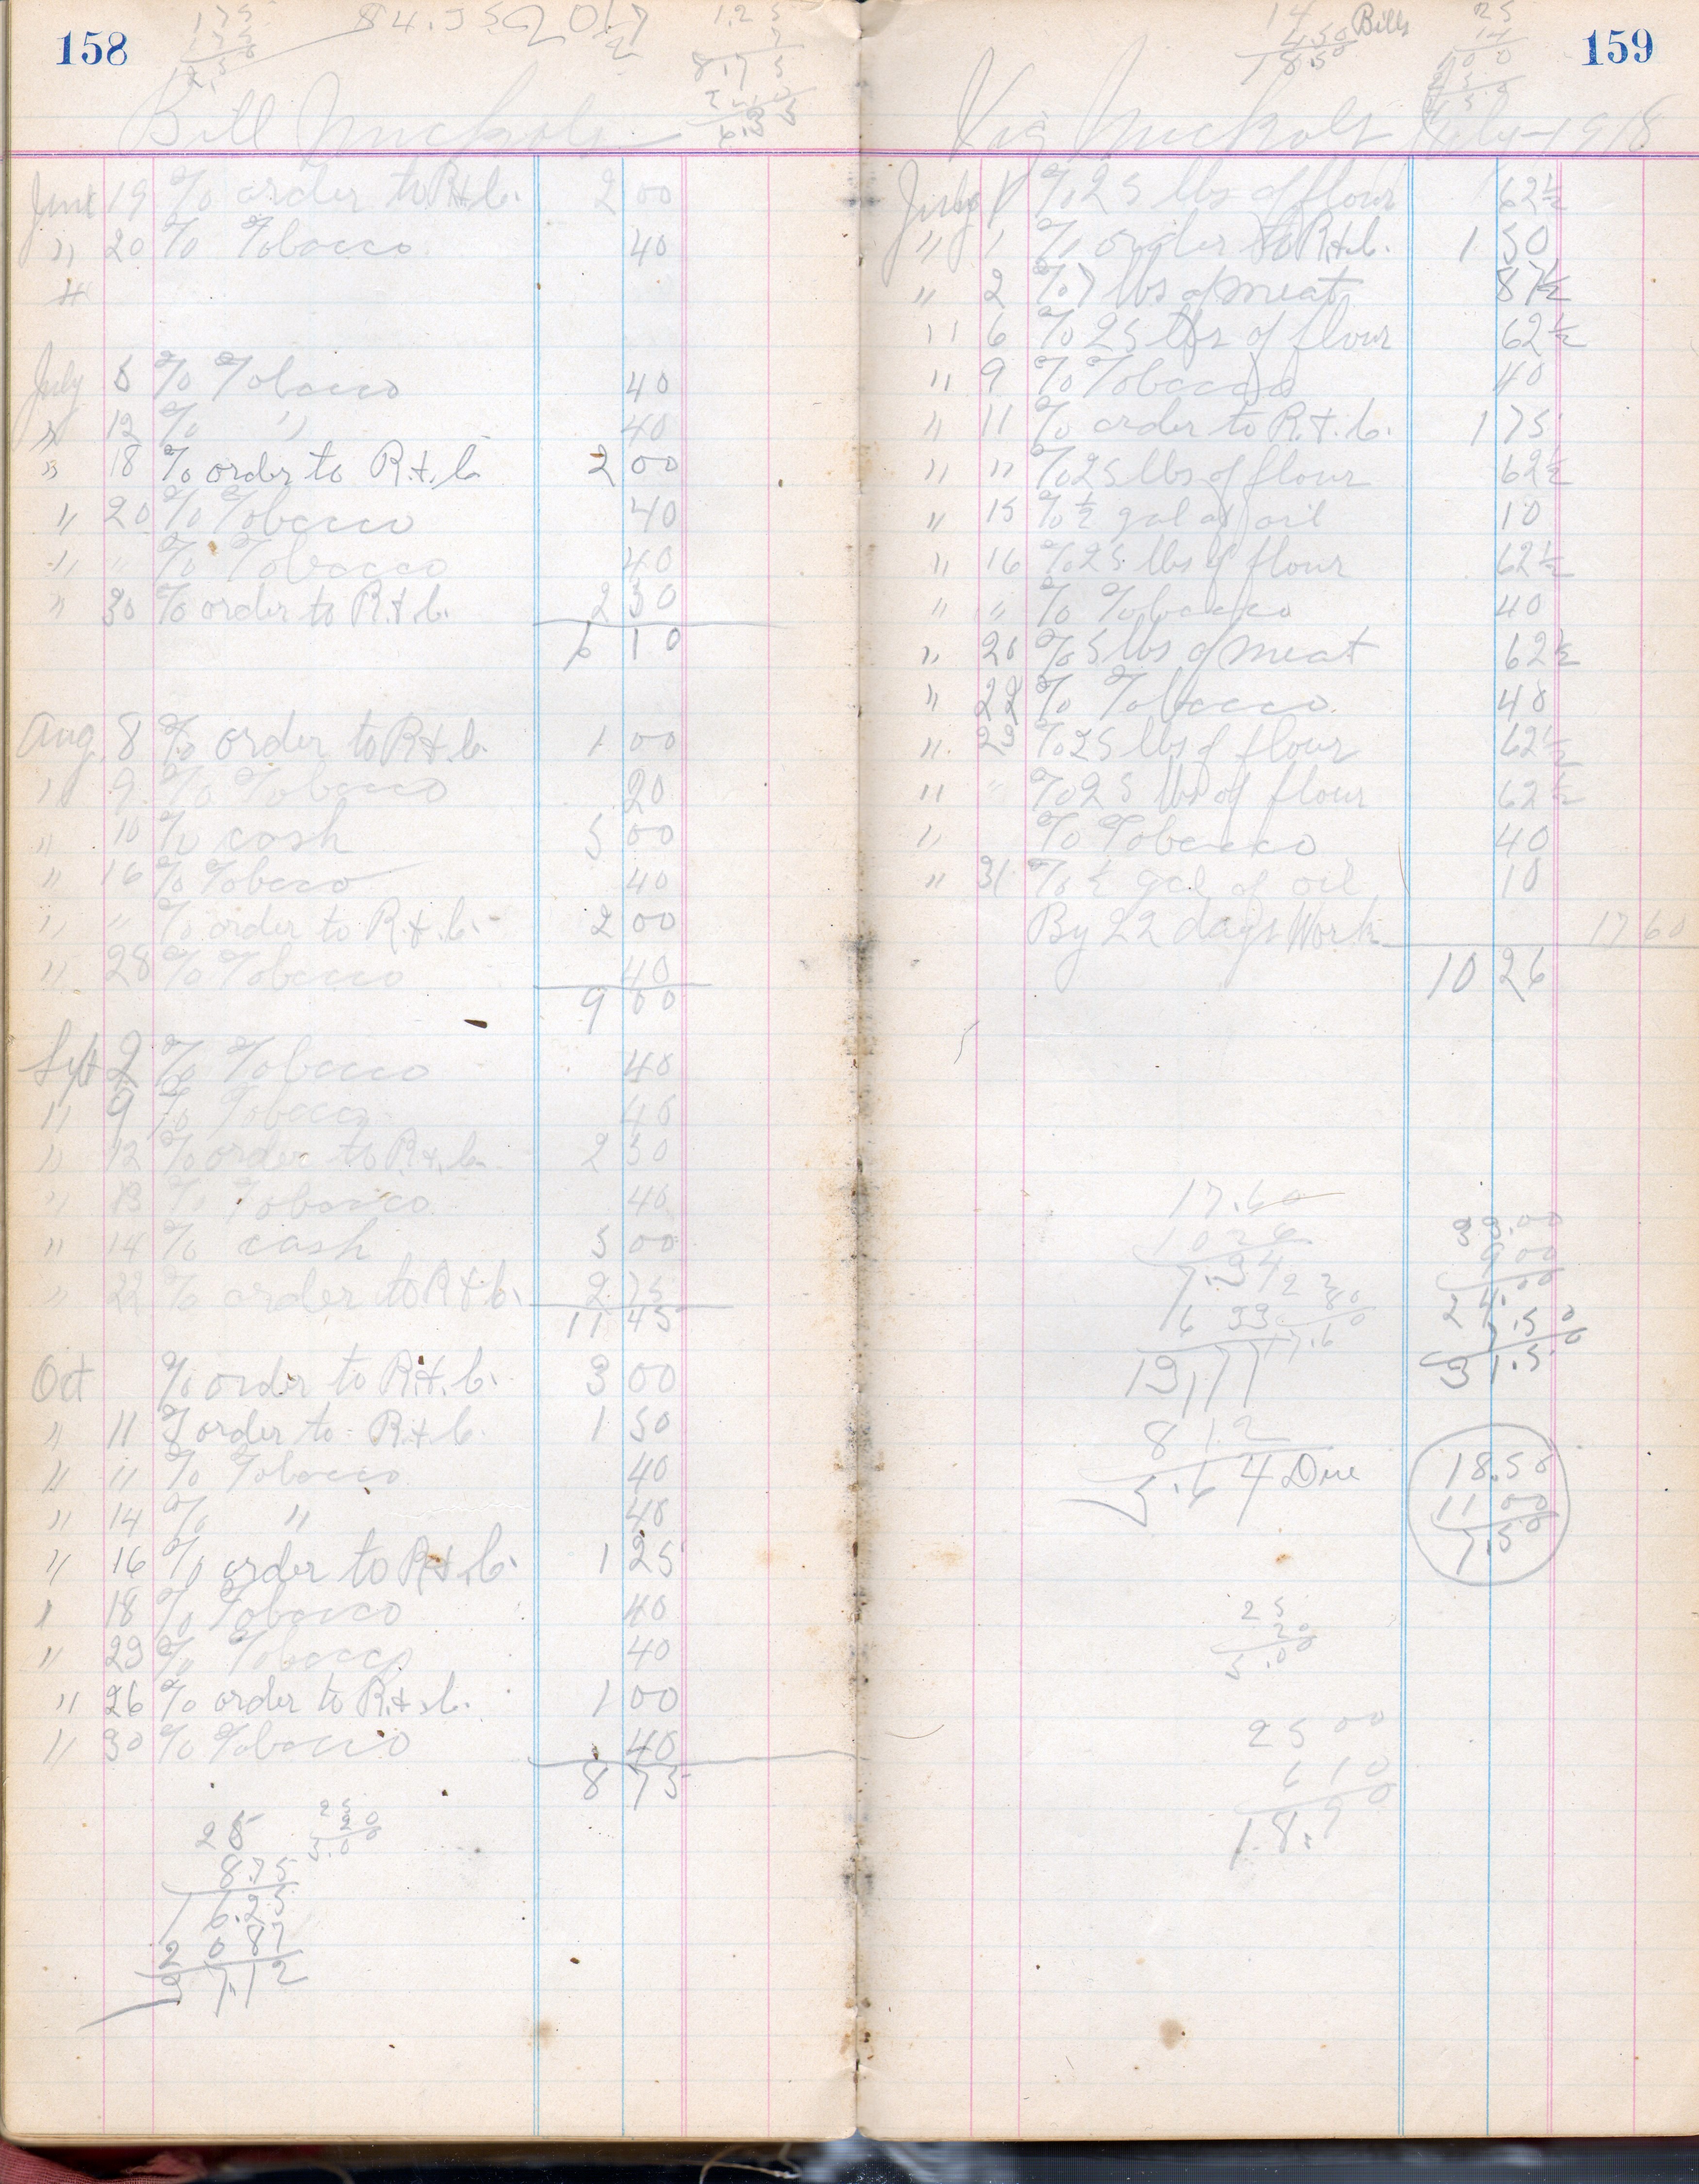 158
175
84.35
20.17
1.25
8.75
Bill Nickols
June 19 % order to R.+.b. 2 00
" 20 % Tobacco 40
"
July 5 % Tobacco 40
" 12 % " 40
" 18 % order to R.+.b. 2 00
" 20 % Tobacco 40
" " % Tobacco 40
" 30 % order to R.+.b. 2 30
6 10
Aug. 8 % order to R.+.b. 1 00
" 9 % Tobacco 20
" 10 % cash 5 00
" 16 % Tobaco 40
" " % order to R.+.b. 2 00
" 28 % Tobacco 40
9 00
Sept 2 % Tobacco 40
" 9 % Tobacco 40
" 12 % order to R.+.b. 2 50
" 13 % Tobacco 40
" 14 % cash 5 00
" 22 % order to R.+.b. 2 75
11 45
Oct % order to R.+.b. 3 00
" 11 % order to R.+.b. 1 50
" 11 % Tobacco 40
" 14 % " 40
" 16 % order to R.+.b. 1 25
" 18 % Tobacco 40
" 23 % Tobacco 40
" 26 % order to R.+.b. 1 00
" 30 % Tobacco 40
8 75
25
8.75
16.25
20 87
37.12
25
20
5.00
159
14
4 50
18.50
Bills
25
14
Nickols July 1918
July 1 % 25 lbs of flour 62½
" 1 % order to R.+.b. 1 50
" 2 % 7 lbs of meat 87½
" 6 % 25 lbs of flour 62½
" 9 % Tobacco 40
" 11 % order to R.+.b. 1 75
" " % 25 lbs of flour 62½
" 15 % ½ gal of oil 10
" 16 % 25 lbs of flour 62½
" " % Tobacco 40
" 20 % 5 lbs of meat 62½
" 22 % Tobacco. 40
" 23 % 25 lbs of flour 62½
" " % 25 lbs of flour 62½
" % Tobacco 40
" 31 % ½ gal of oil 10
By 22 days Work 17 60
10 26
17.60
10 26
7.34
6 33
13,77
8 12
5.64 Due
22
80
17.60
33.00
9 00
24.00
7.50
31.50
18.50
11 00
7.50
25
20
5.00
25 00
6 10
18.9